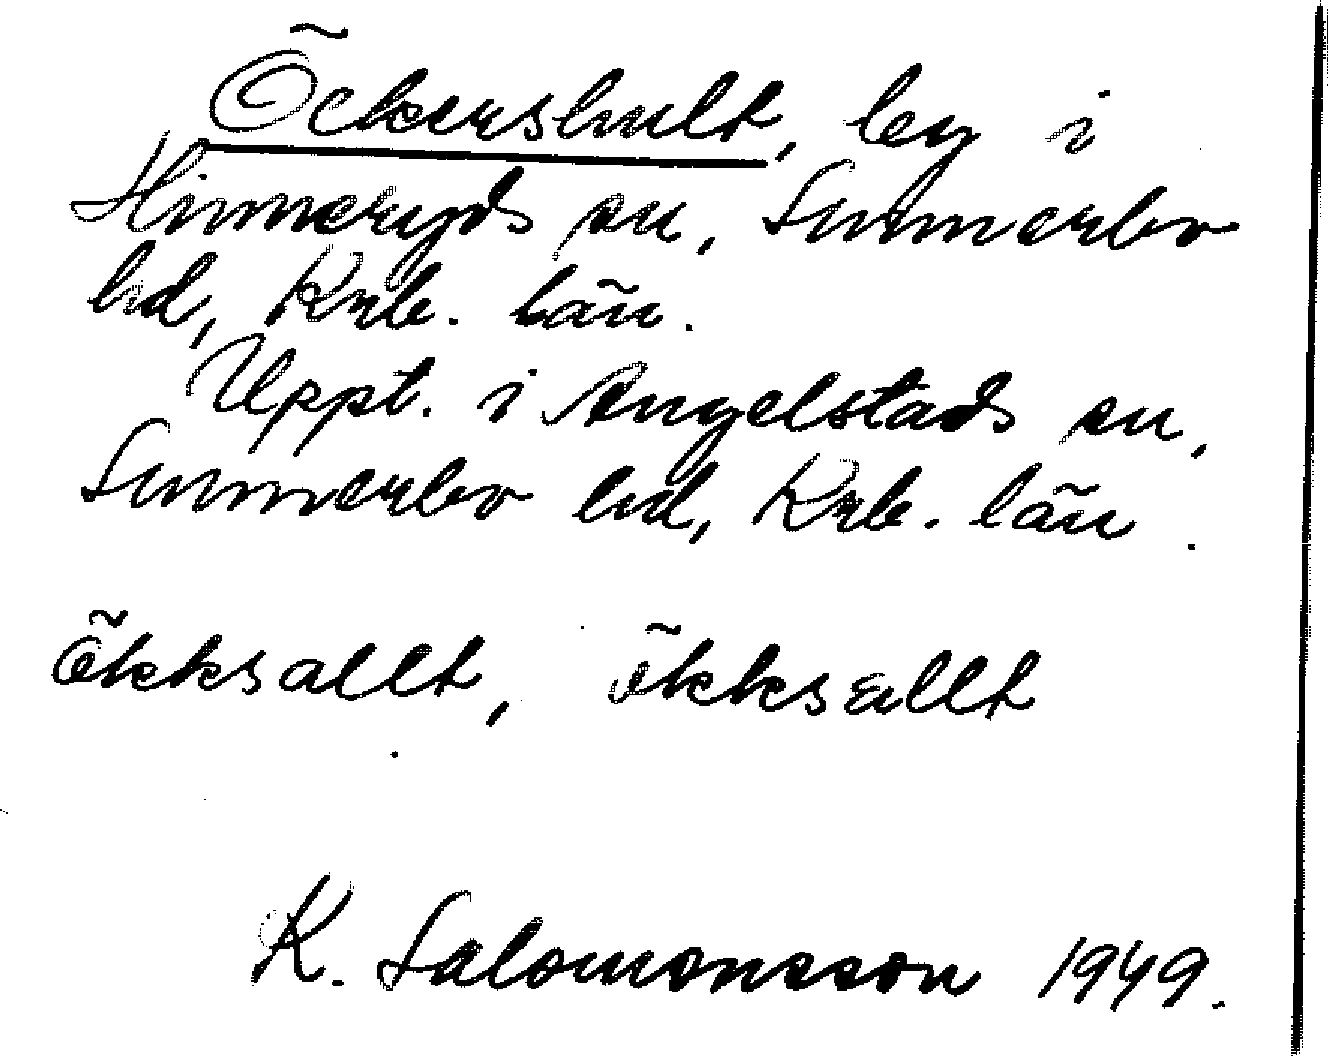 Öckershult, by i
Hinneryds sn, Sunnerbo
hd, Krb. län.
Uppt. i Angelstads sn,
Sunnerbo hd, Krb. län.
ökksallt, ökksallt
K. Salomonsson 1949.